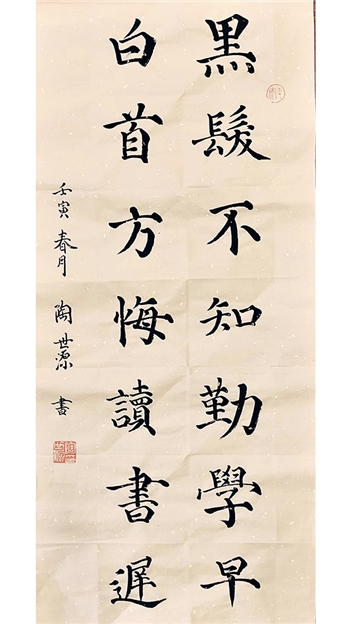 黑髮不知勤學早
白首方悔讀書遲
壬寅春月 陶世源 書